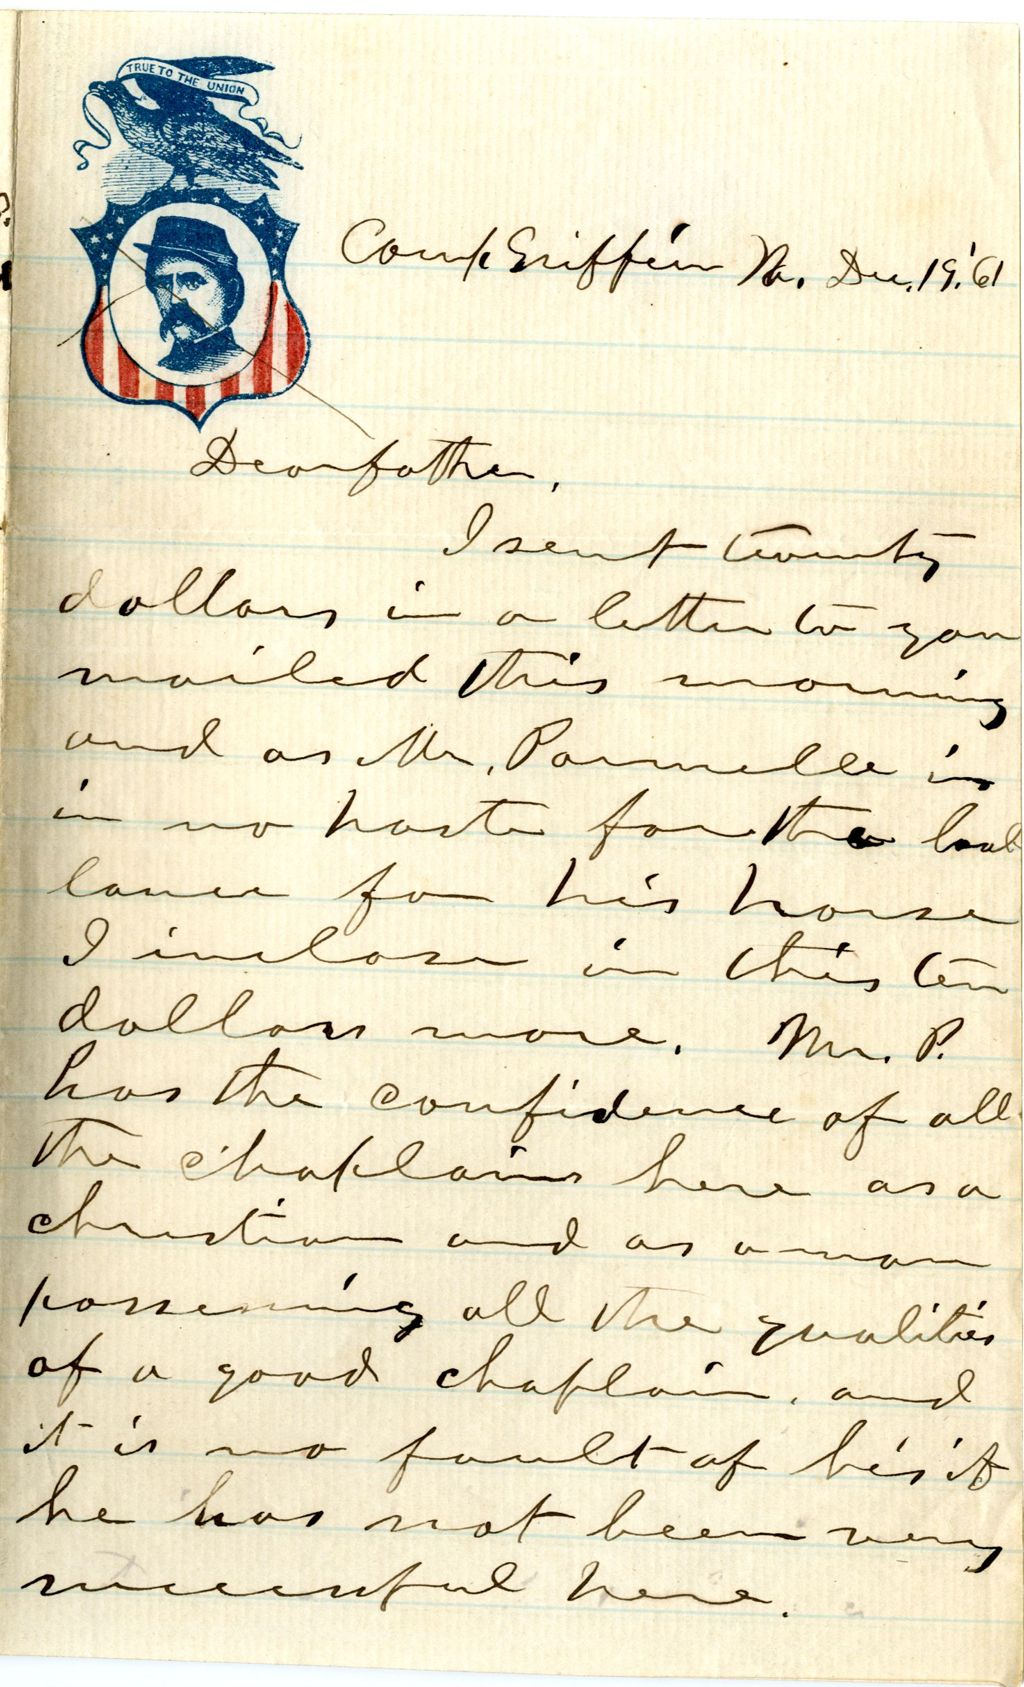 TRUE TO THE UNION
Camp Griffin Va. Dec. 19. '61
Dear father,
I sent twenty
dollars in a letter to you
mailed this morning
and as Mr. Parmelee is
in no haste for the bal
lance for his horse
I inclose in this ten
dollars more. Mr. P.
has the confidence of all
the chaplains here as a
christian and as a man
possessing all the qualities
of a good chaplain, and
it is no fault of his if
he has not been very
successful here.